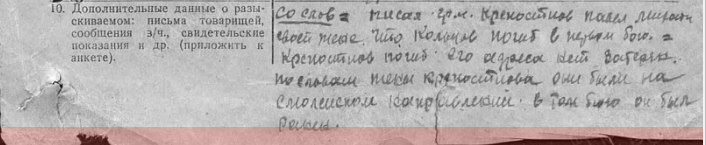 10. Дополнительные данные о разы-
скиваемом: письма товарищей,
сообщения з/ч., свидетельские
показания и др. (приложить к
анкете).
со слов = писал гр-н. Крепостнов
своей жене. Что Кольцов погиб в первом бою. =
Крепостнов погиб. Его адреса нет
по словам жены Крепостнова они были на
Смоленском направлении. в том бою он был
ранен.